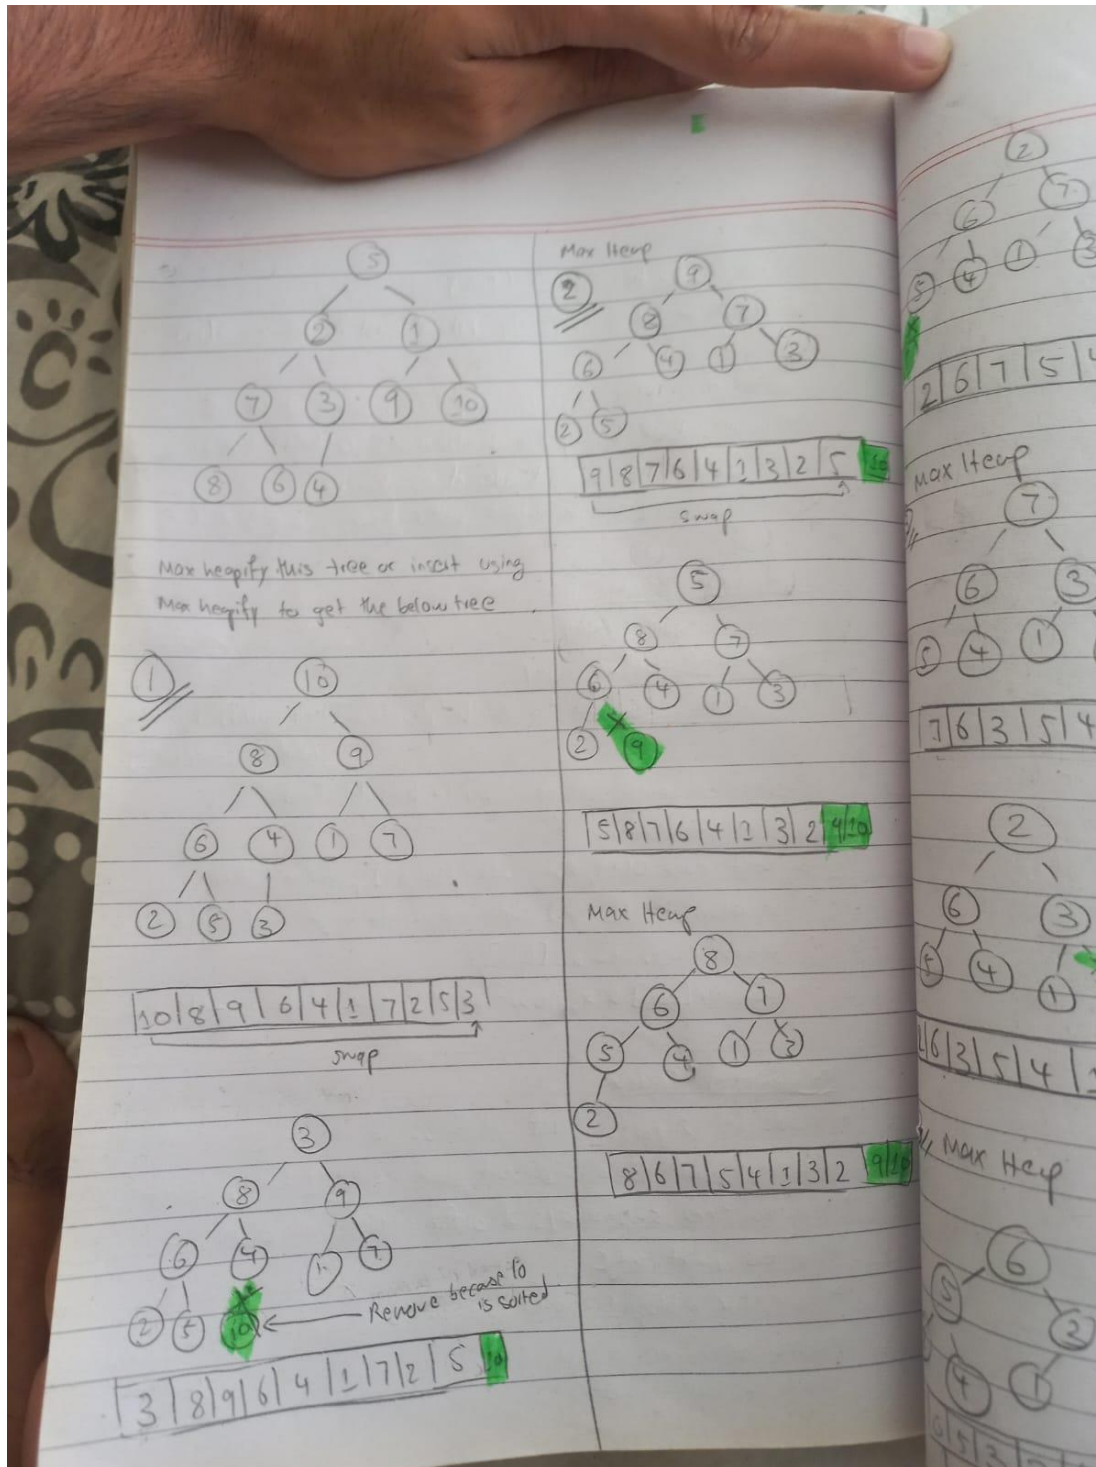 5
2 1
7 3 9 10
8 6 4
Max heapify this tree or insert using
Max heapify to get the below tree .
1
10
8 9
6 4 1 7
2 5 3
10 8 9 6 4 1 7 2 5 3
swap
3
8 9
6 4 1 7
2 5 10
Remove because 10
is sorted
3 8 9 6 4 1 7 2 5 10
Max Heap
2
9
8 7
6 4 1 3
2 5
9 8 7 6 4 1 3 2 5 10
swap
5
8 7
6 4 1 3
2 X 9
5 8 7 6 4 1 3 2 9 10
Max Heap
8
6 7
5 4 1 3
2
8 6 7 5 4 1 3 2 9 10
2
6 7
5 4 1 3
2 6 7 5 4
Max Heap
7
6 3
5 4 1
7 6 3 5 4
2
6 3
5 4 1
2 6 3 5 4 1
Max Heap
6
5 2
4 1